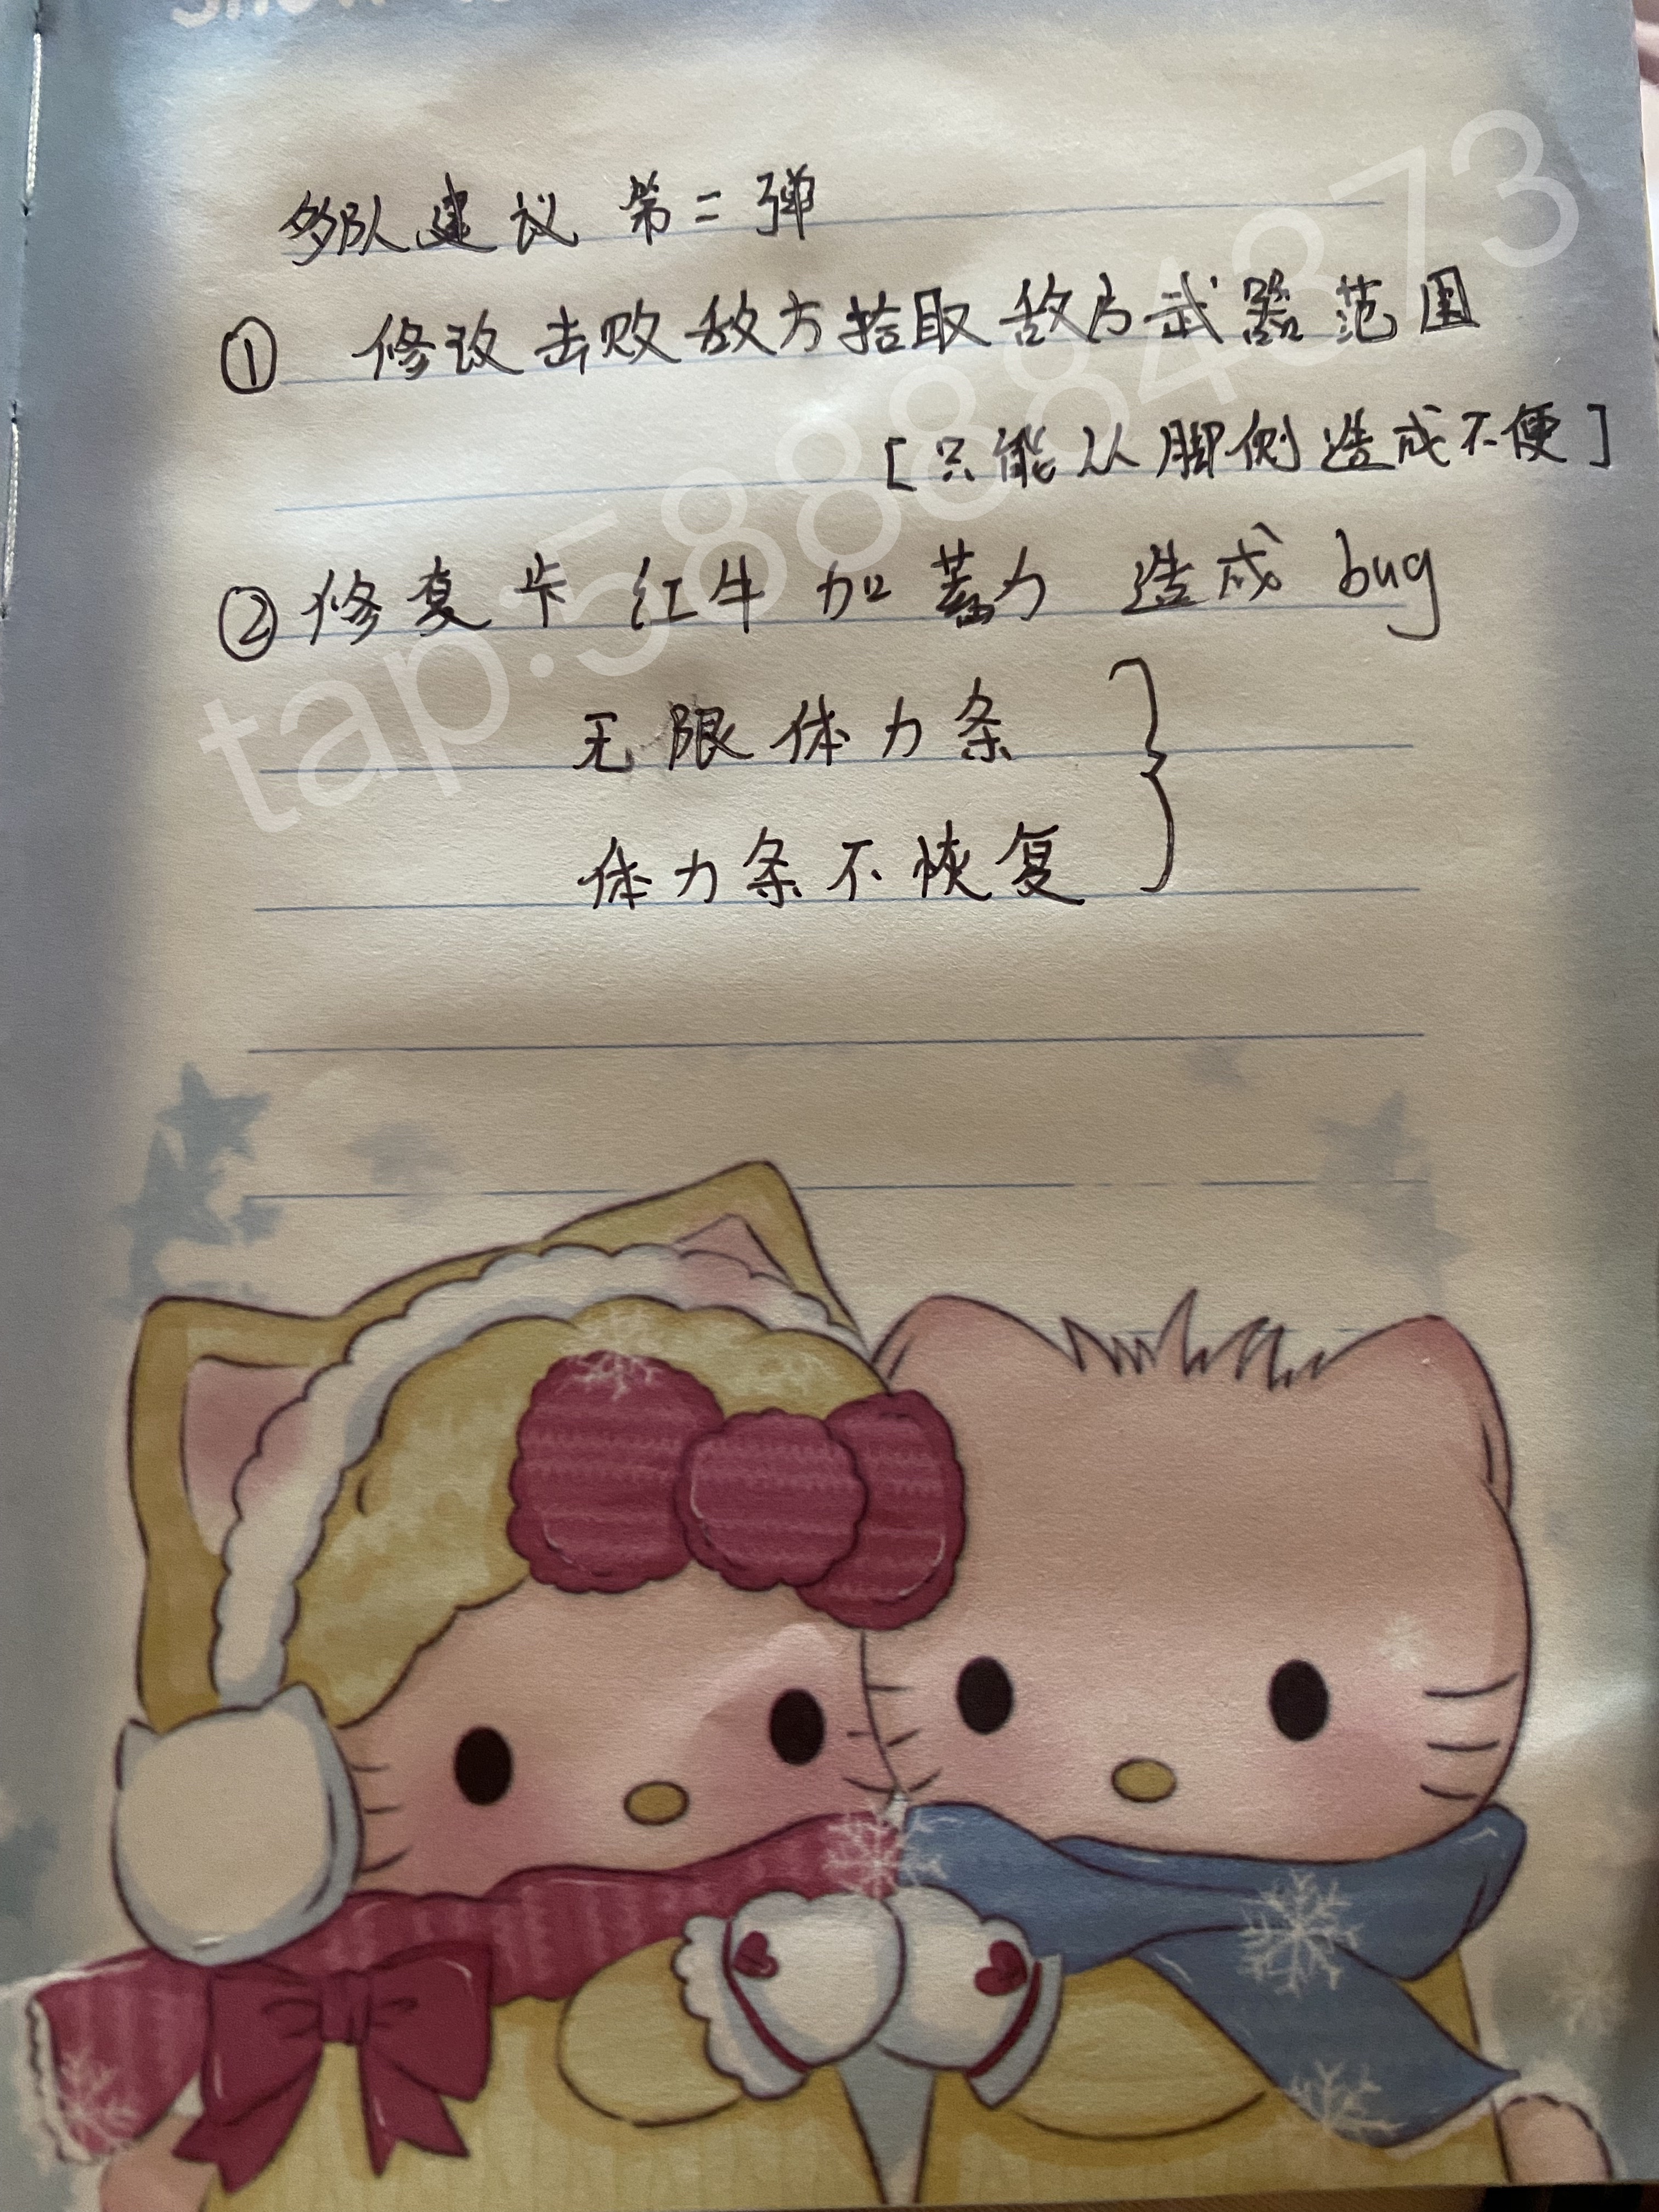 多队建议 第二弹
① 修改击败敌方拾取敌方武器范围
[只能从脚侧造成不便]
② 修复卡 红牛 加蓄力 造成 bug
无限体力条
体力条不恢复
tap:588884373